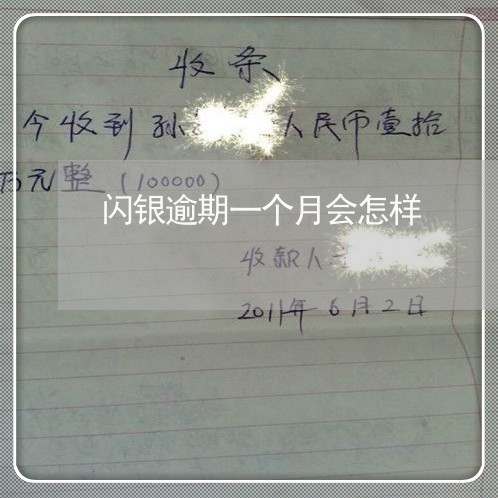 收条
今收到孙 人民币壹拾
万元整（100000）
闪银逾期一个月会怎样
收款人
2011年6月2日